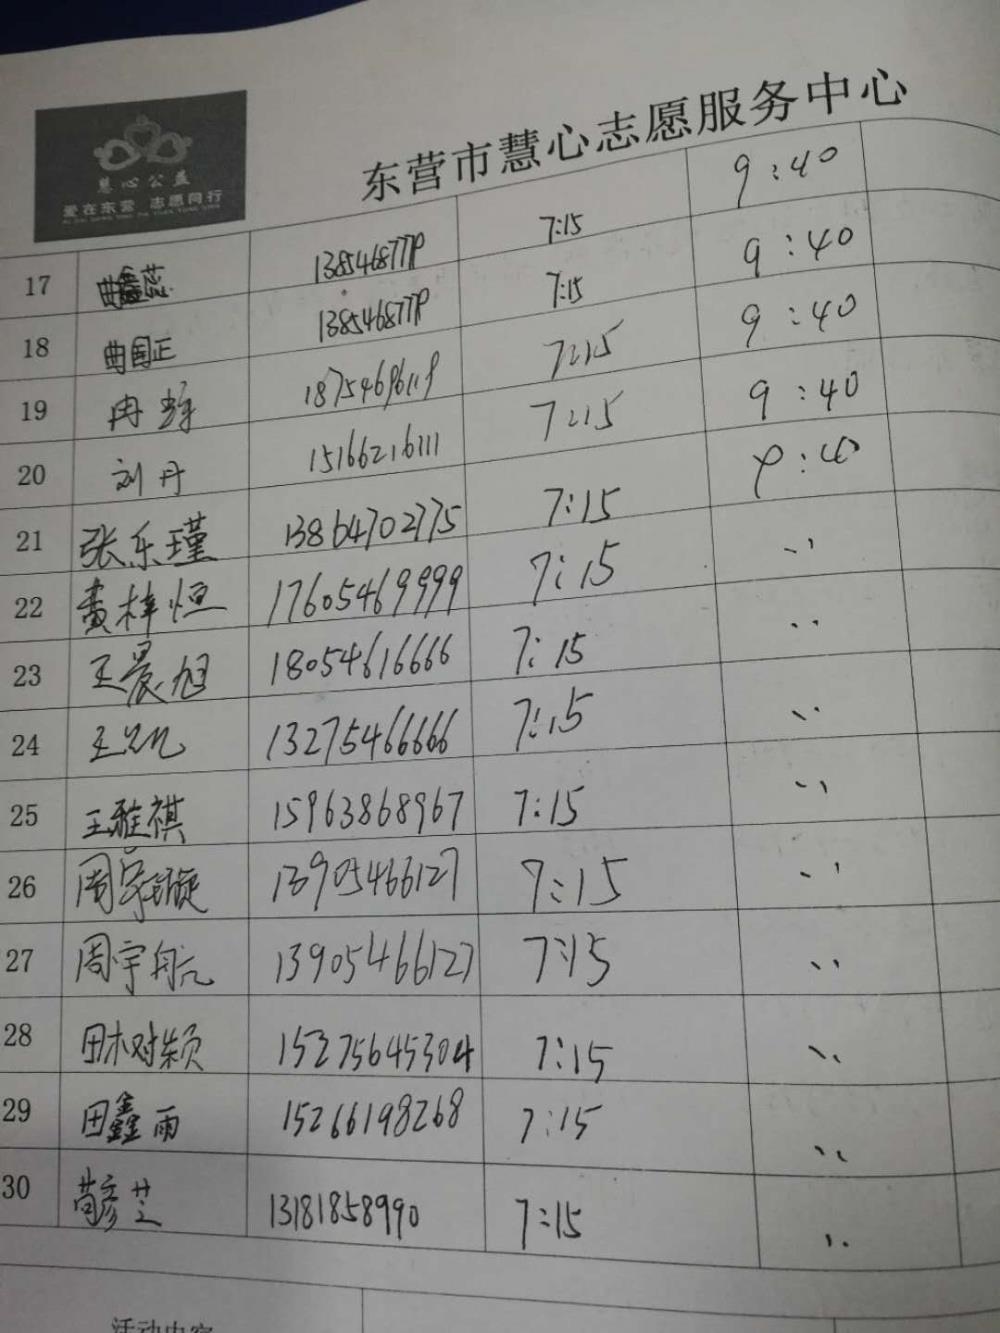 慧心公益
爱在东营 志愿同行
东营市慧心志愿服务中心
17 曲鑫蕊 1385468777 7:15 9:40
18 曲国正 1385468777 7:15 9:40
19 冉 7:15 9:40
20 刘丹 15166216111 7:15 9:40
21 张乐瑾 13864702775 7:15 9:40
22 黄梓恒 17605469999 7:15 、、
23 王晨旭 18054616666 7:15 、、
24 王 13275466666 7:15 、、
25 王雅祺 15963868967 7:15 、、
26 周家璇 13905466127 7:15 、、
27 周宇航 13905466127 7:15 、、
28 田树颖 15275645304 7:15 、、
29 田鑫雨 15266198268 7:15 、、
30 苟彦芝 13181858990 7:15 、、
活动内容